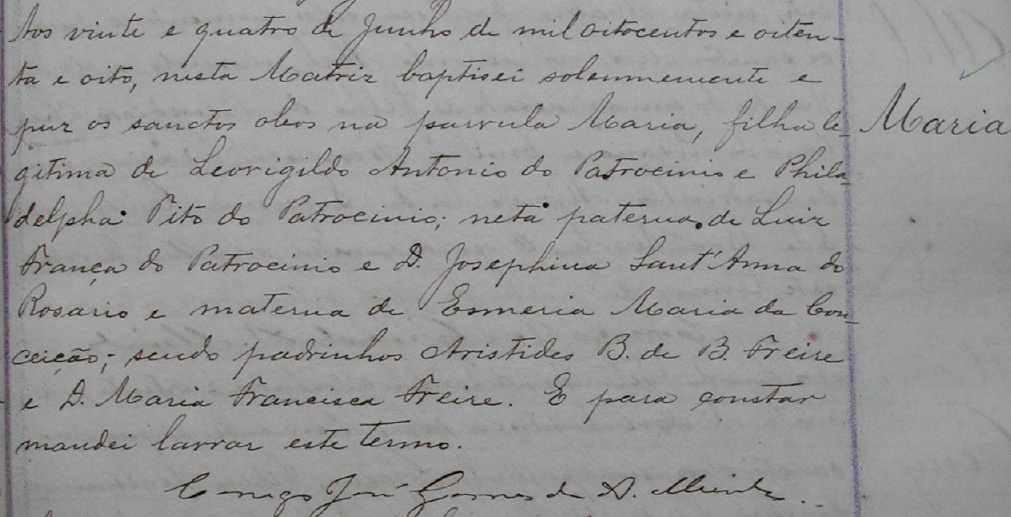 Aos vinte e quatro de Junho de mil oitocentos e oiten-
ta e oito, nesta Matriz baptisei solemnemente e
puz os sanctos oleos na parvula Maria, filha le-
Maria
gitima de Leovigildo Antonio do Patrocinio e Phila-
delpha Tito do Patrocinio; neta paterna de Luiz
França do Patrocinio e D. Josephina Sant'Anna do
Rosario e materna de Esmeria Maria da Con-
ceição; sendo padrinhos Aristides B. de B. Freire
e D. Maria Francisca Freire. E para constar
mandei lavrar este termo.
Conego José Gomes de